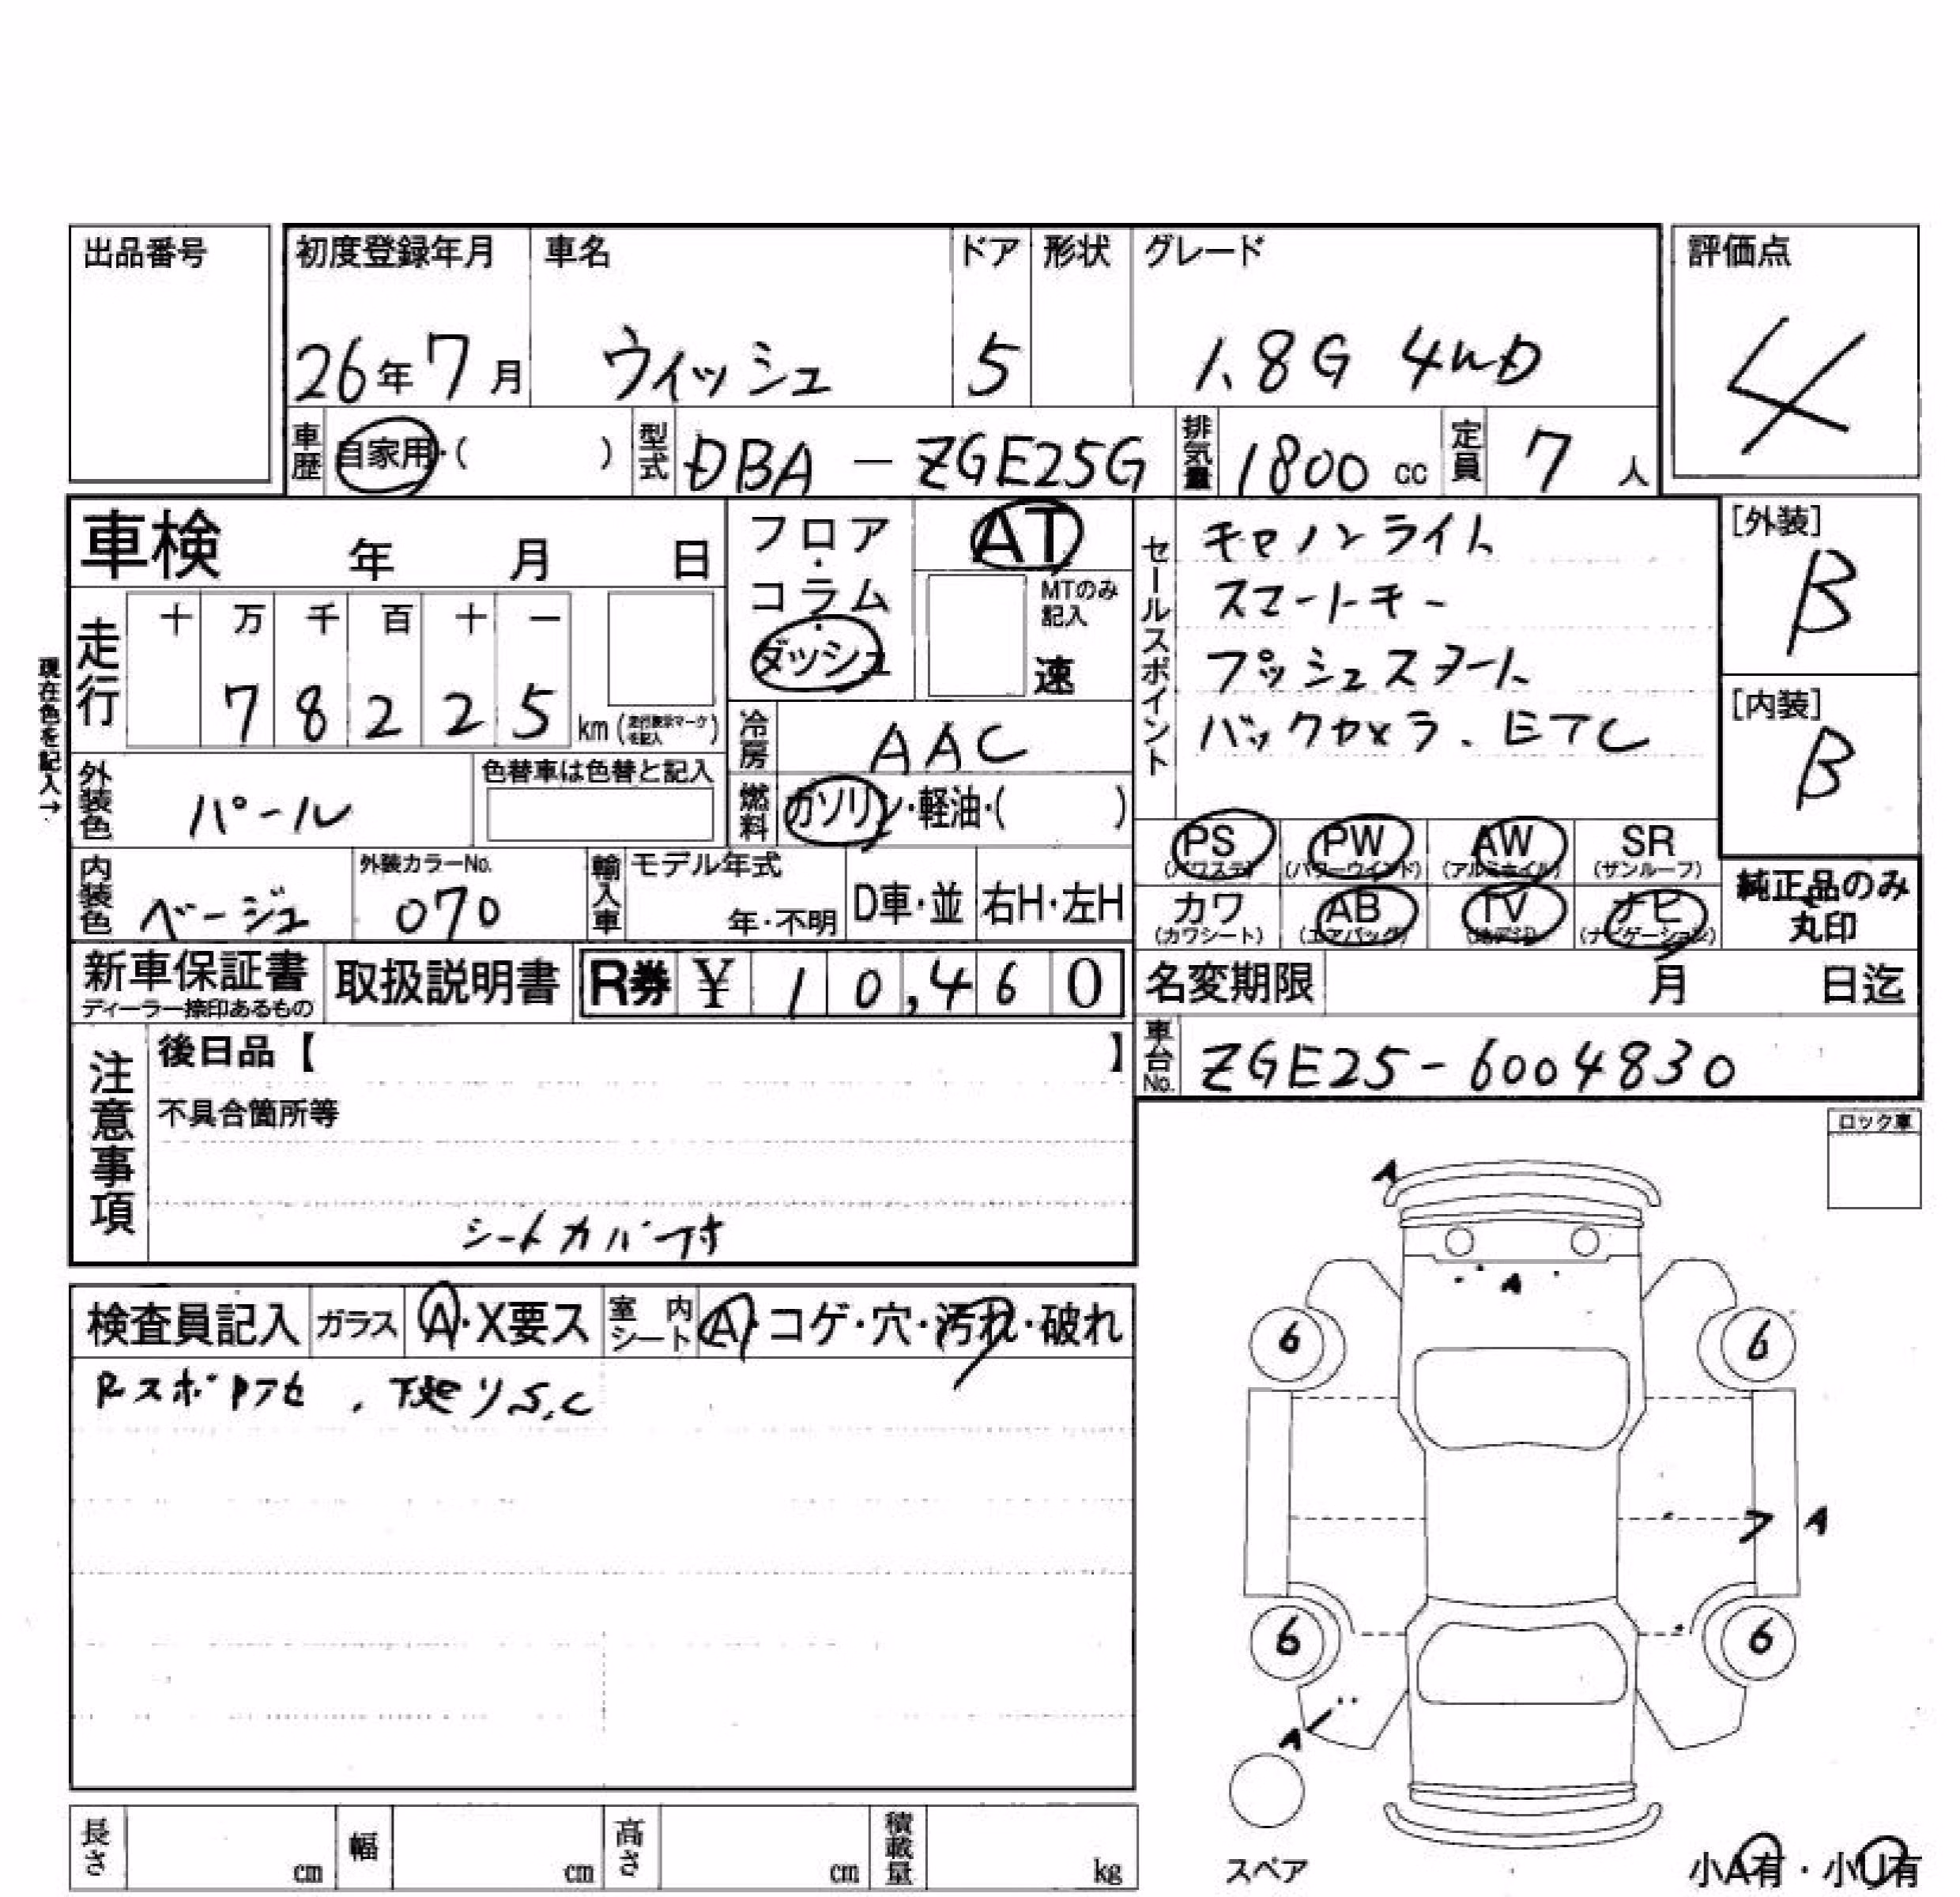 出品番号
初度登録年月 車名 ドア 形状 グレード 評価点
26年7月 ウィッシュ 5 1.8G 4WD 4
車歴 自家用・( ) 型式 DBA-ZGE25G 排気量 1800cc 定員 7人
車検 年 月 日
フロア・コラム・ダッシュ
AT
MTのみ記入
速
セールスポイント
キセノンライト
スマートキー
プッシュスタート
バックカメラ.ETC
[外装]
B
[内装]
B
現在色を記入→
走行 十 万 千 百 十 一
7 8 2 2 5 km(走行表示マークを記入)
冷房 AAC
外装色 パール 色替車は色替と記入
燃料 ガソリン・軽油・( )
PS (パワステ) PW (パワーウインド) AW (アルミホイル) SR (サンルーフ)
内装色 ベージュ 外装カラーNo. 070 輸入車 モデル年式 年・不明 D車・並 右H・左H
カワ (カワシート) AB (エアバッグ) TV (地デジ) ナビ (ナビゲーション)
純正品のみ
丸印
新車保証書
ディーラー捺印あるもの
取扱説明書 R券 ¥ 10,460
名変期限 月 日迄
車台No. ZGE25-6004830
注意事項
後日品【 】
不具合箇所等
シートカバー付
ロック車
検査員記入 ガラス A・X要ス 室内シート A・コゲ・穴・汚れ・破れ
下廻りS,C
A
A
6 6
A
6 6
A
スペア
小A有・小U有
長さ cm 幅 cm 高さ cm 積載量 kg